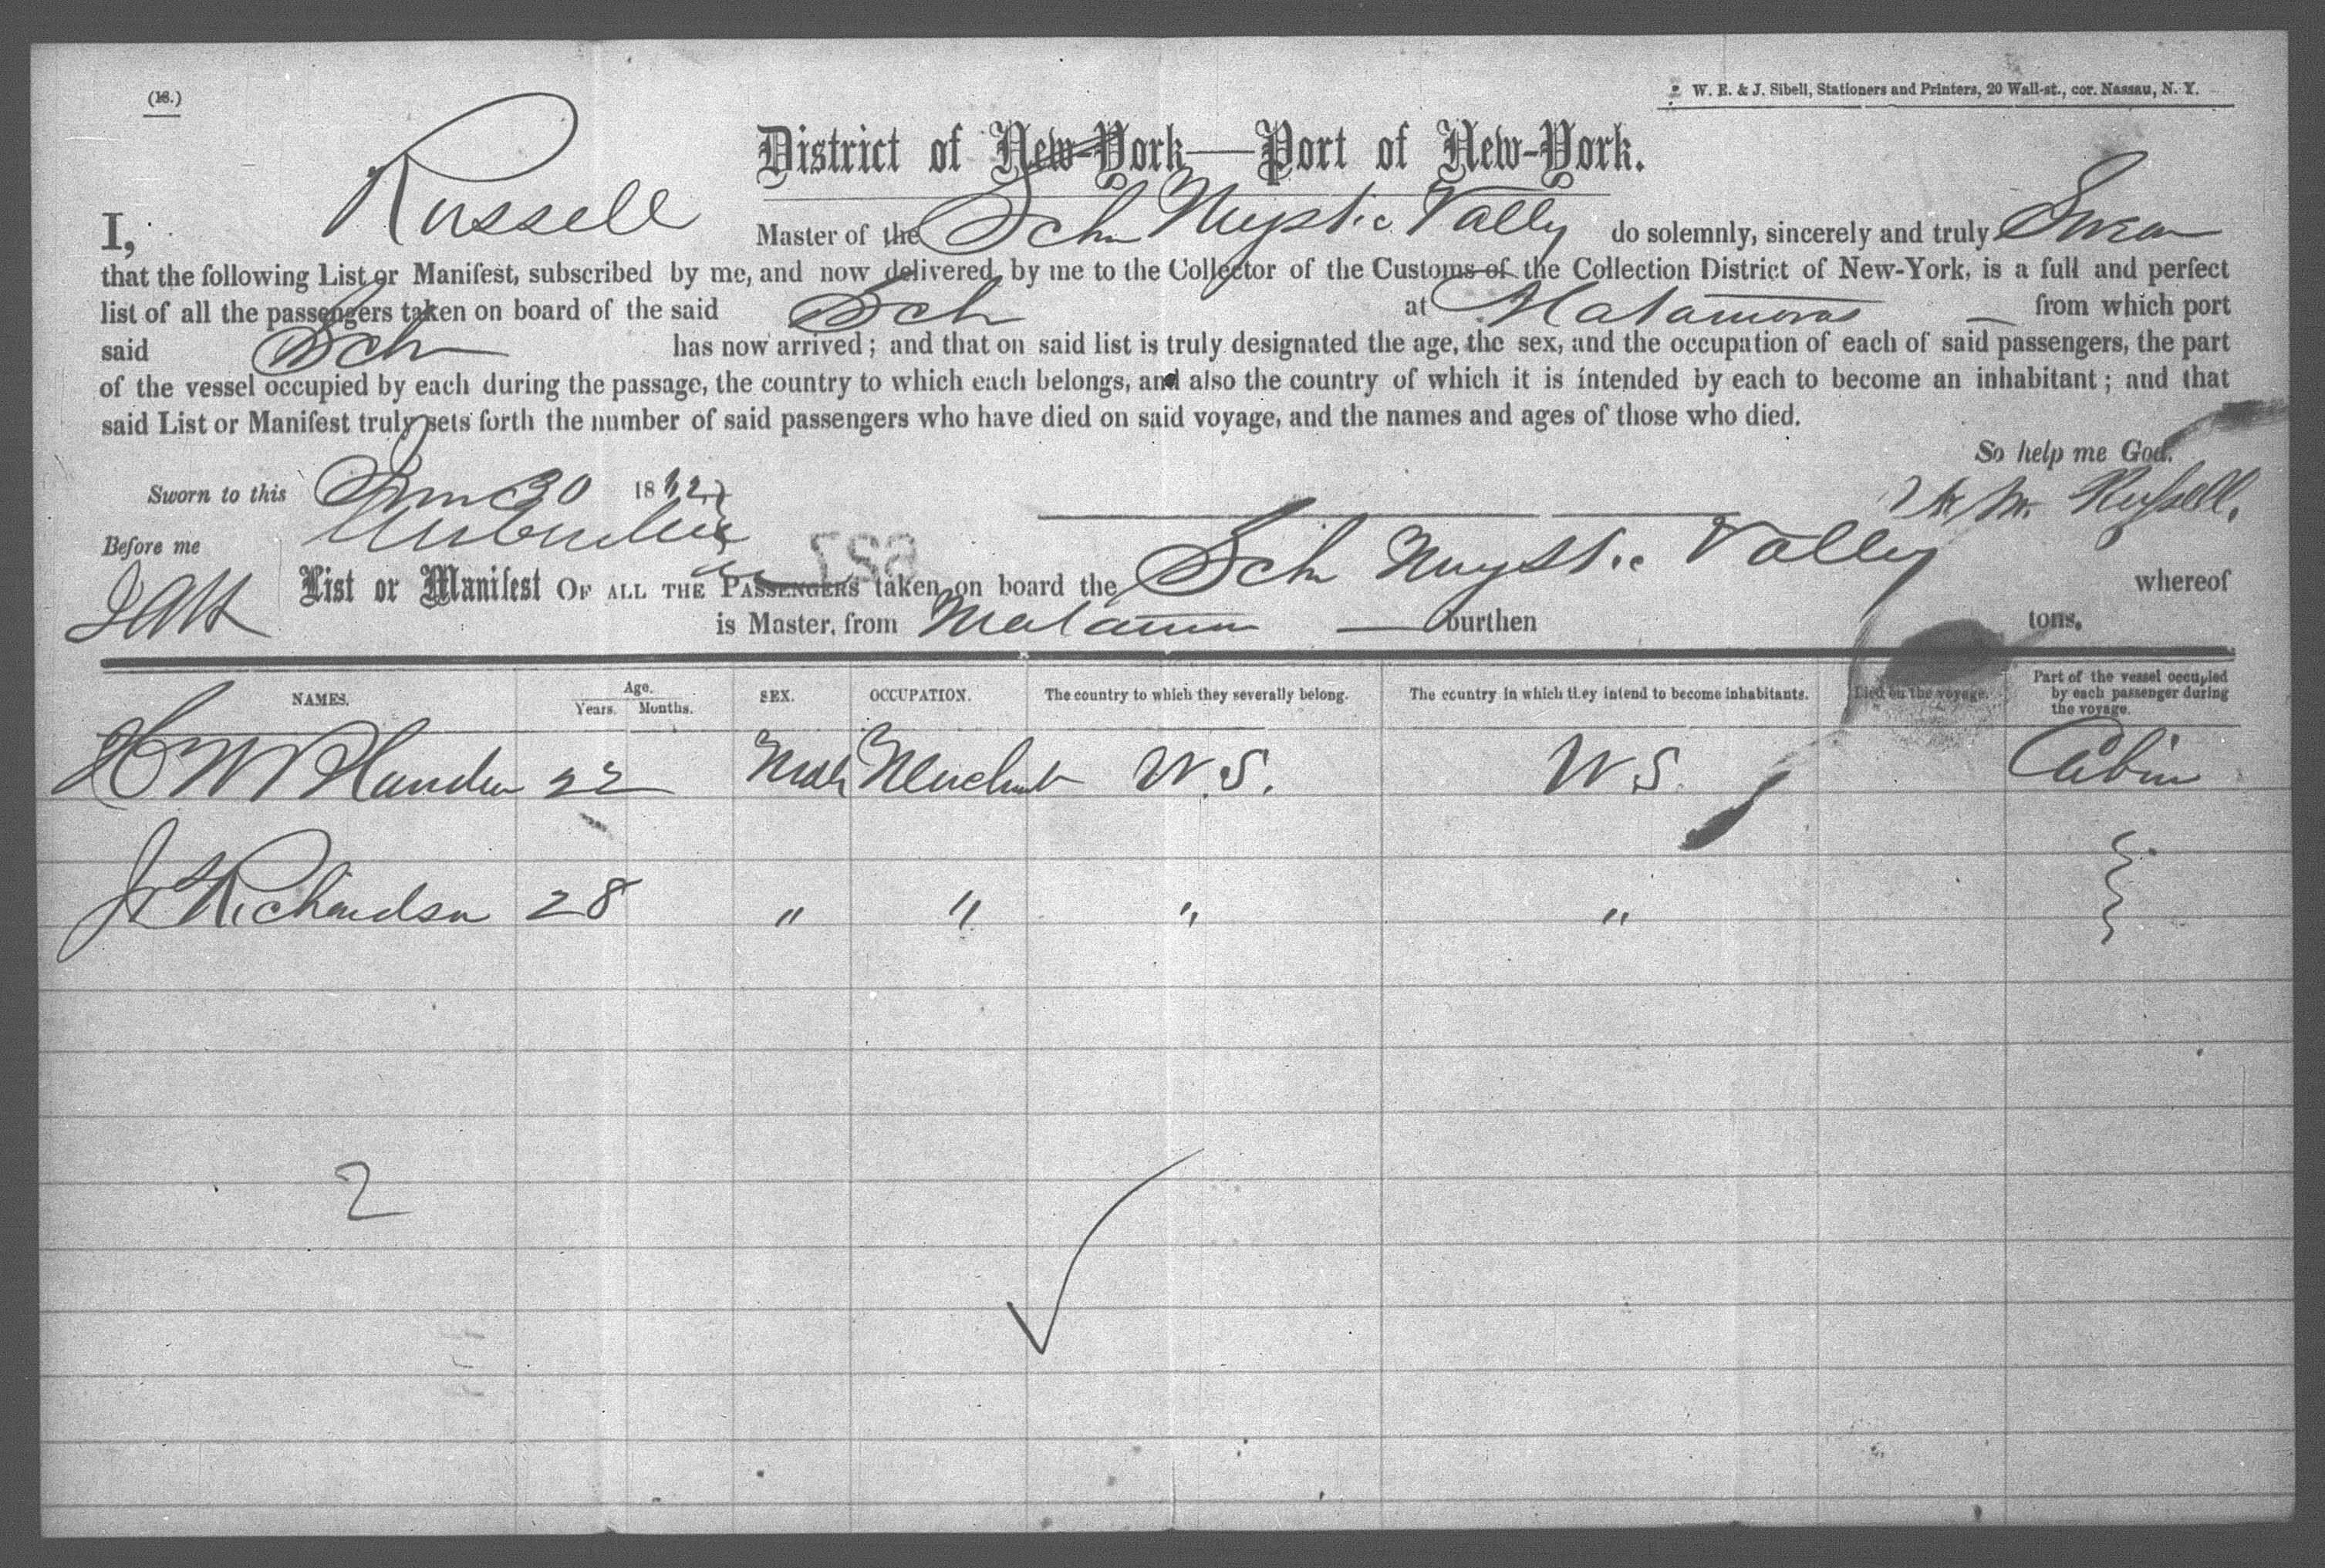 (18.)
W. E. & J. Sibell, Stationers and Printers, 20 Wall-st., cor. Nassau, N. Y.
District of New-York—Port of New-York.
I, Russell Master of the Sch Mystic Vally do solemnly, sincerely and truly Swear
that the following List or Manifest, subscribed by me, and now delivered by me to the Collector of the Customs of the Collection District of New-York, is a full and perfect
list of all the passengers taken on board of the said Sch at Matamoras from which port
said Sch has now arrived; and that on said list is truly designated the age, the sex, and the occupation of each of said passengers, the part
of the vessel occupied by each during the passage, the country to which each belongs, and also the country of which it is intended by each to become an inhabitant; and that
said List or Manifest truly sets forth the number of said passengers who have died on said voyage, and the names and ages of those who died.
So help me God.
Sworn to this 30 1862
Russell.
Before me
List or Manifest OF ALL THE PASSENGERS taken on board the Sch Mystic Vally whereof
is Master, from burthen tons,
NAMES. Age. Years. Months. SEX. OCCUPATION. The country to which they severally belong. The country in which they intend to become inhabitants. Died on the voyage. Part of the vessel occupied by each passenger during the voyage.
22 Male Merchant U.S. U.S. Cabin
Richardson 28 " " " "
2